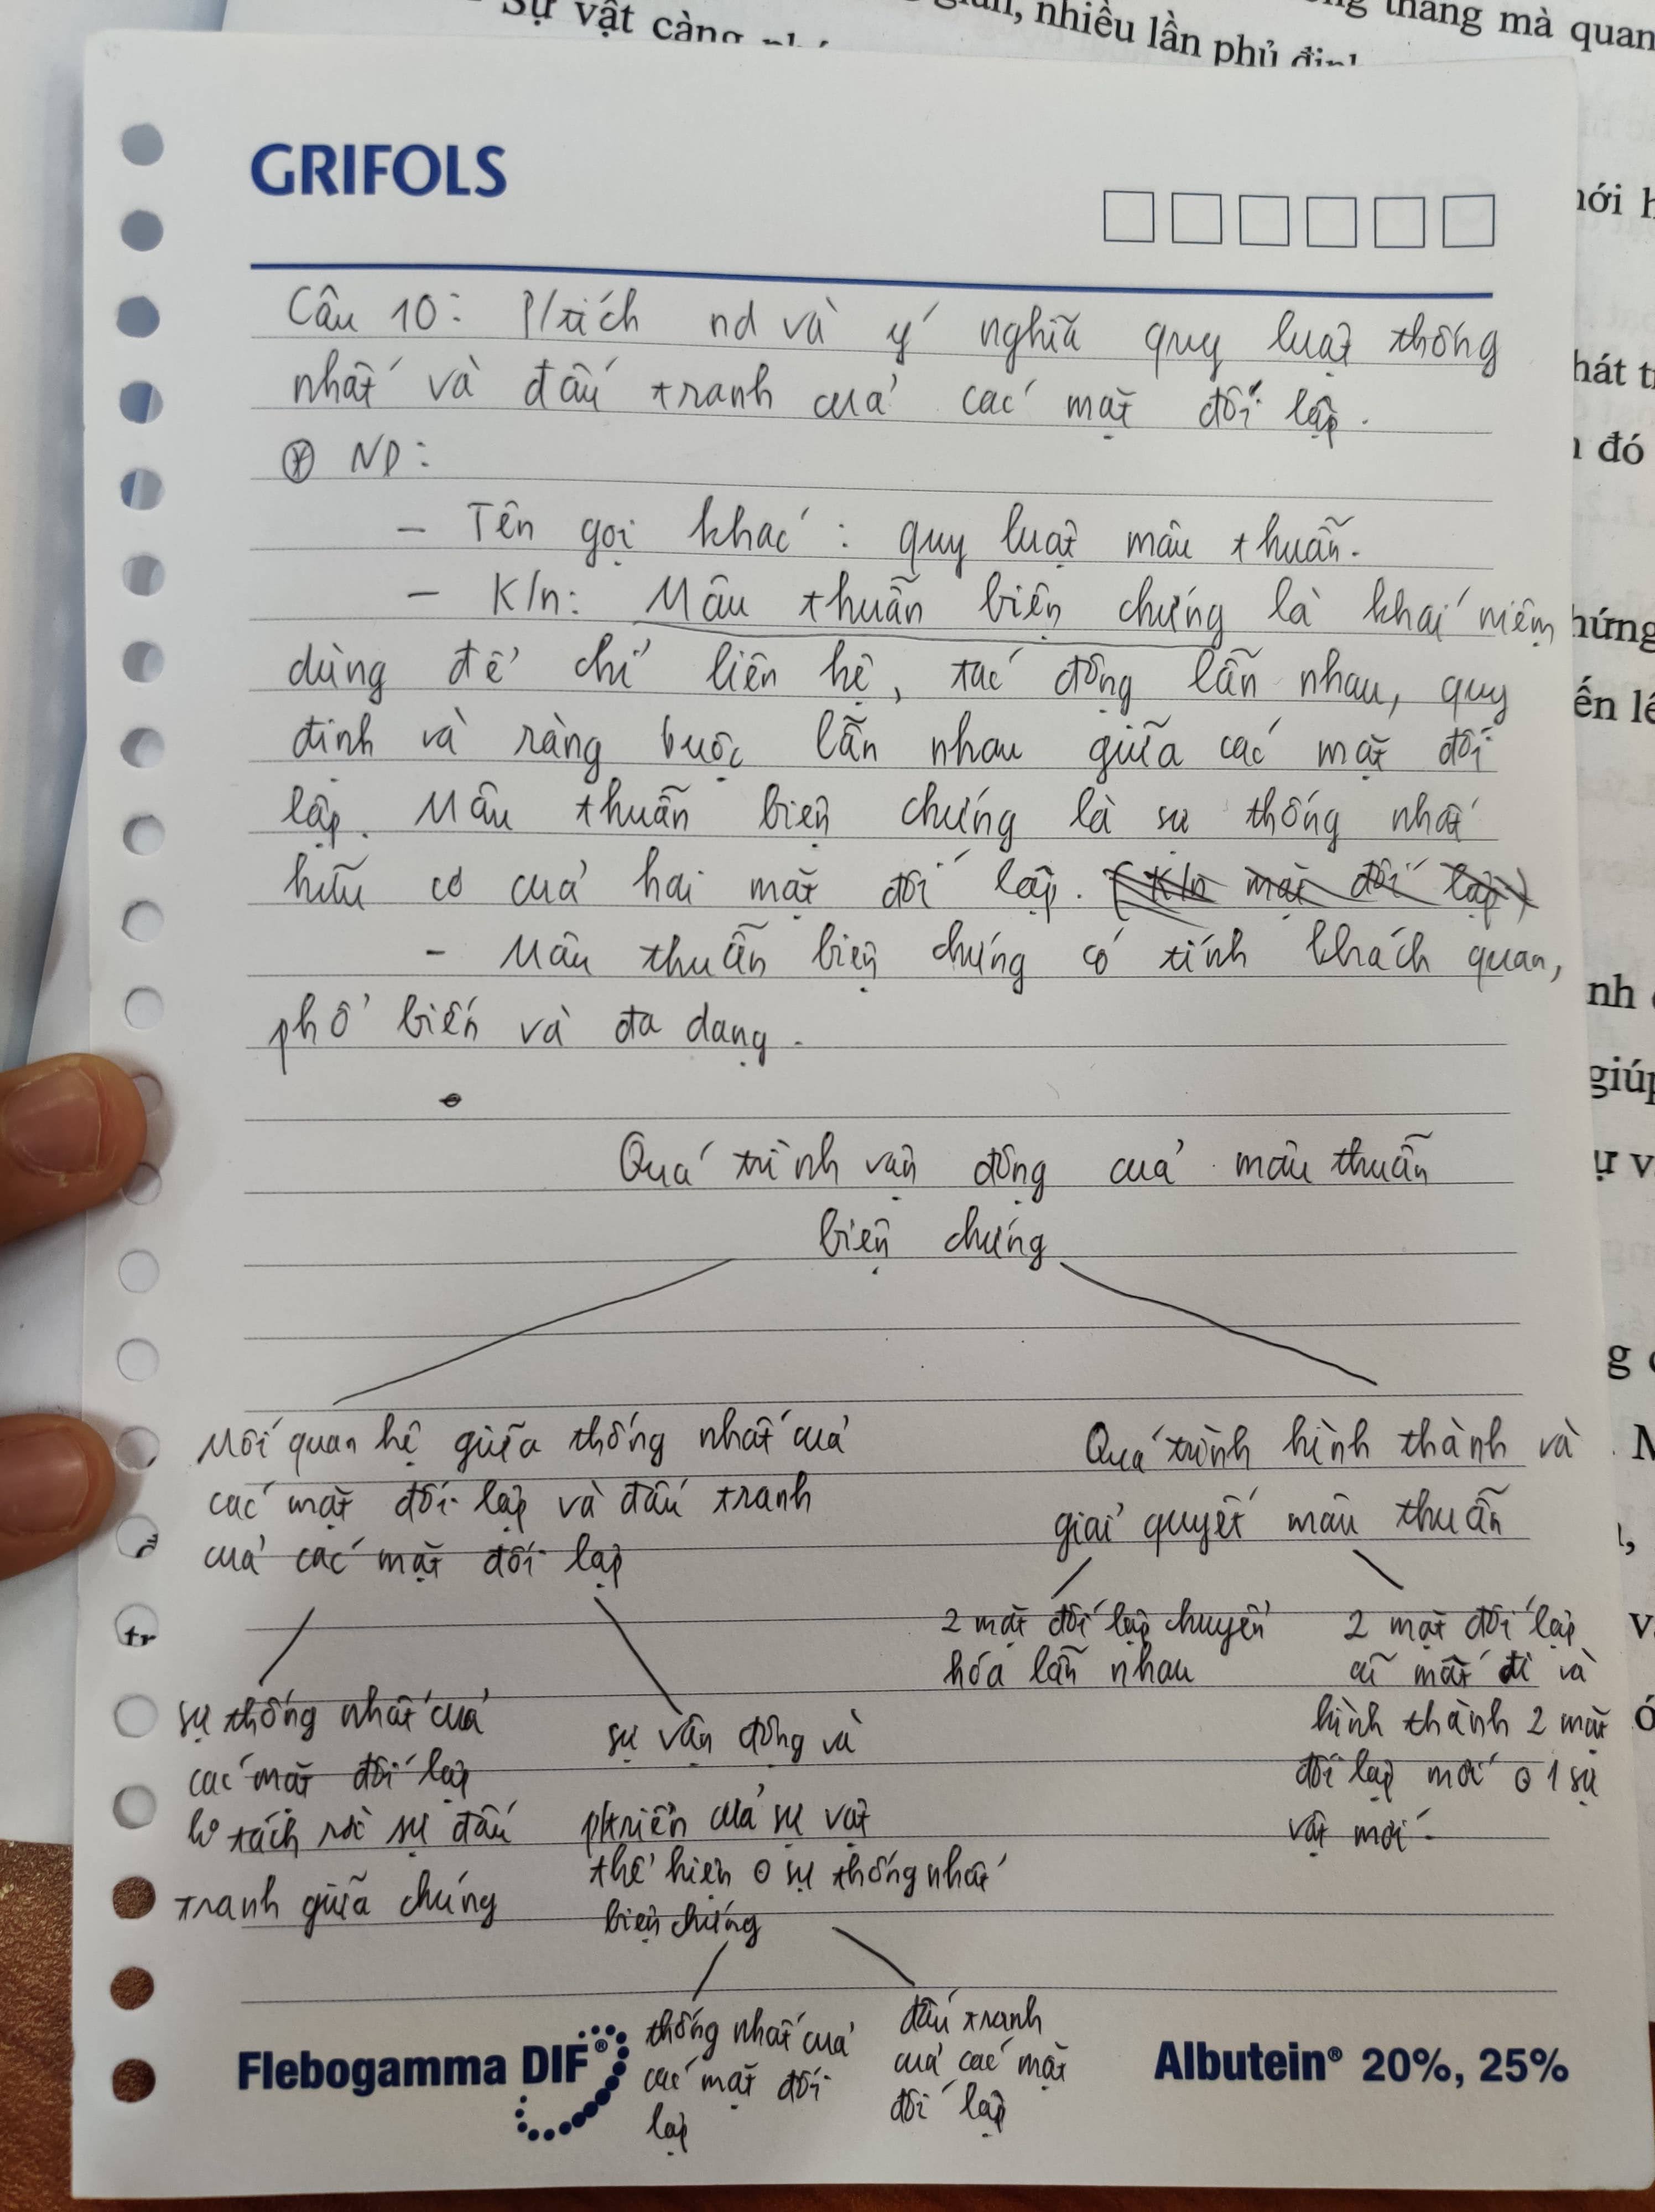 Sự vật càng
gian, nhiều lần phủ định
thẳng mà quan
GRIFOLS
Câu 10: P/tích nd và ý nghĩa quy luật thống
nhất và đấu tranh của các mặt đối lập.
* ND:
- Tên gọi khác: quy luật mâu thuẫn.
- K/n: Mâu thuẫn biện chứng là khái niệm
dùng để chỉ liên hệ, tác động lẫn nhau, quy
định và ràng buộc lẫn nhau giữa các mặt đối
lập. Mâu thuẫn biện chứng là sự thống nhất
hữu cơ của hai mặt đối lập. (K/n mặt đối lập)
- Mâu thuẫn biện chứng có tính khách quan,
phổ biến và đa dạng.
Quá trình vận động của mâu thuẫn
biện chứng
Mối quan hệ giữa thống nhất của
các mặt đối lập và đấu tranh
của các mặt đối lập
sự thống nhất của
các mặt đối lập
ko tách rời sự đấu
tranh giữa chúng
sự vận động và
p/triển của sự vật
thể hiện ở sự thống nhất
biện chứng
thống nhất của
các mặt đối
lập
đấu tranh
của các mặt
đối lập
Quá trình hình thành và
giải quyết mâu thuẫn
2 mặt đối lập chuyển
hóa lẫn nhau
2 mặt đối lập
cũ mất đi và
hình thành 2 mặt
đối lập mới ở 1 sự
vật mới.
Flebogamma DIF®
Albutein® 20%, 25%
đó
nh
giúp